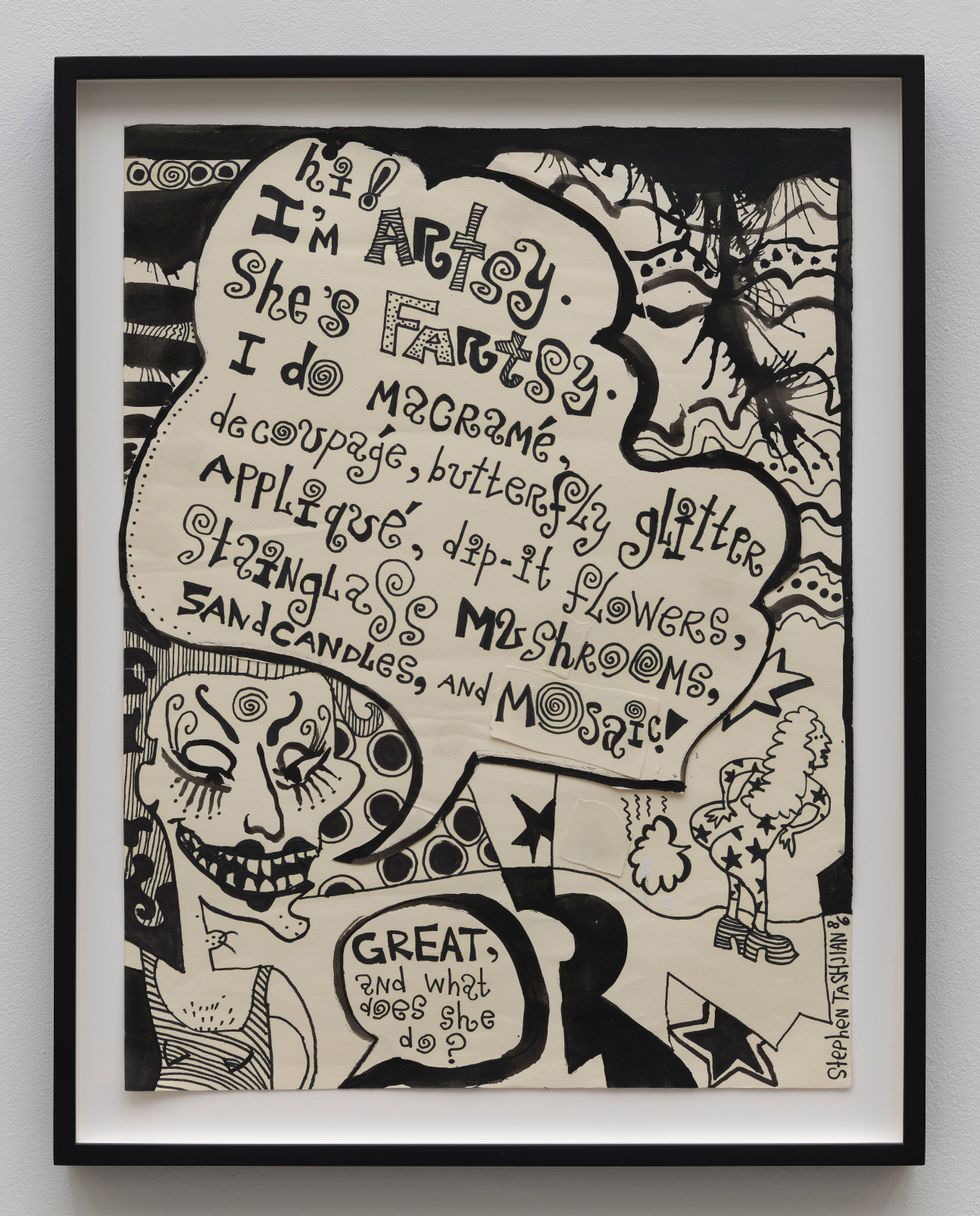 hi!
I'm ARtsy.
She's FARtsy.
I do MACRAMé,
decoupáge, butterfLy glitter
APPLiqué, dip-it fLoWERS,
StaiNglaSS MuShROOMS,
SANdCANDLES, AND MOSaiC!
GREAT,
and what
does she
do?
StepheN TASHJIAN 86